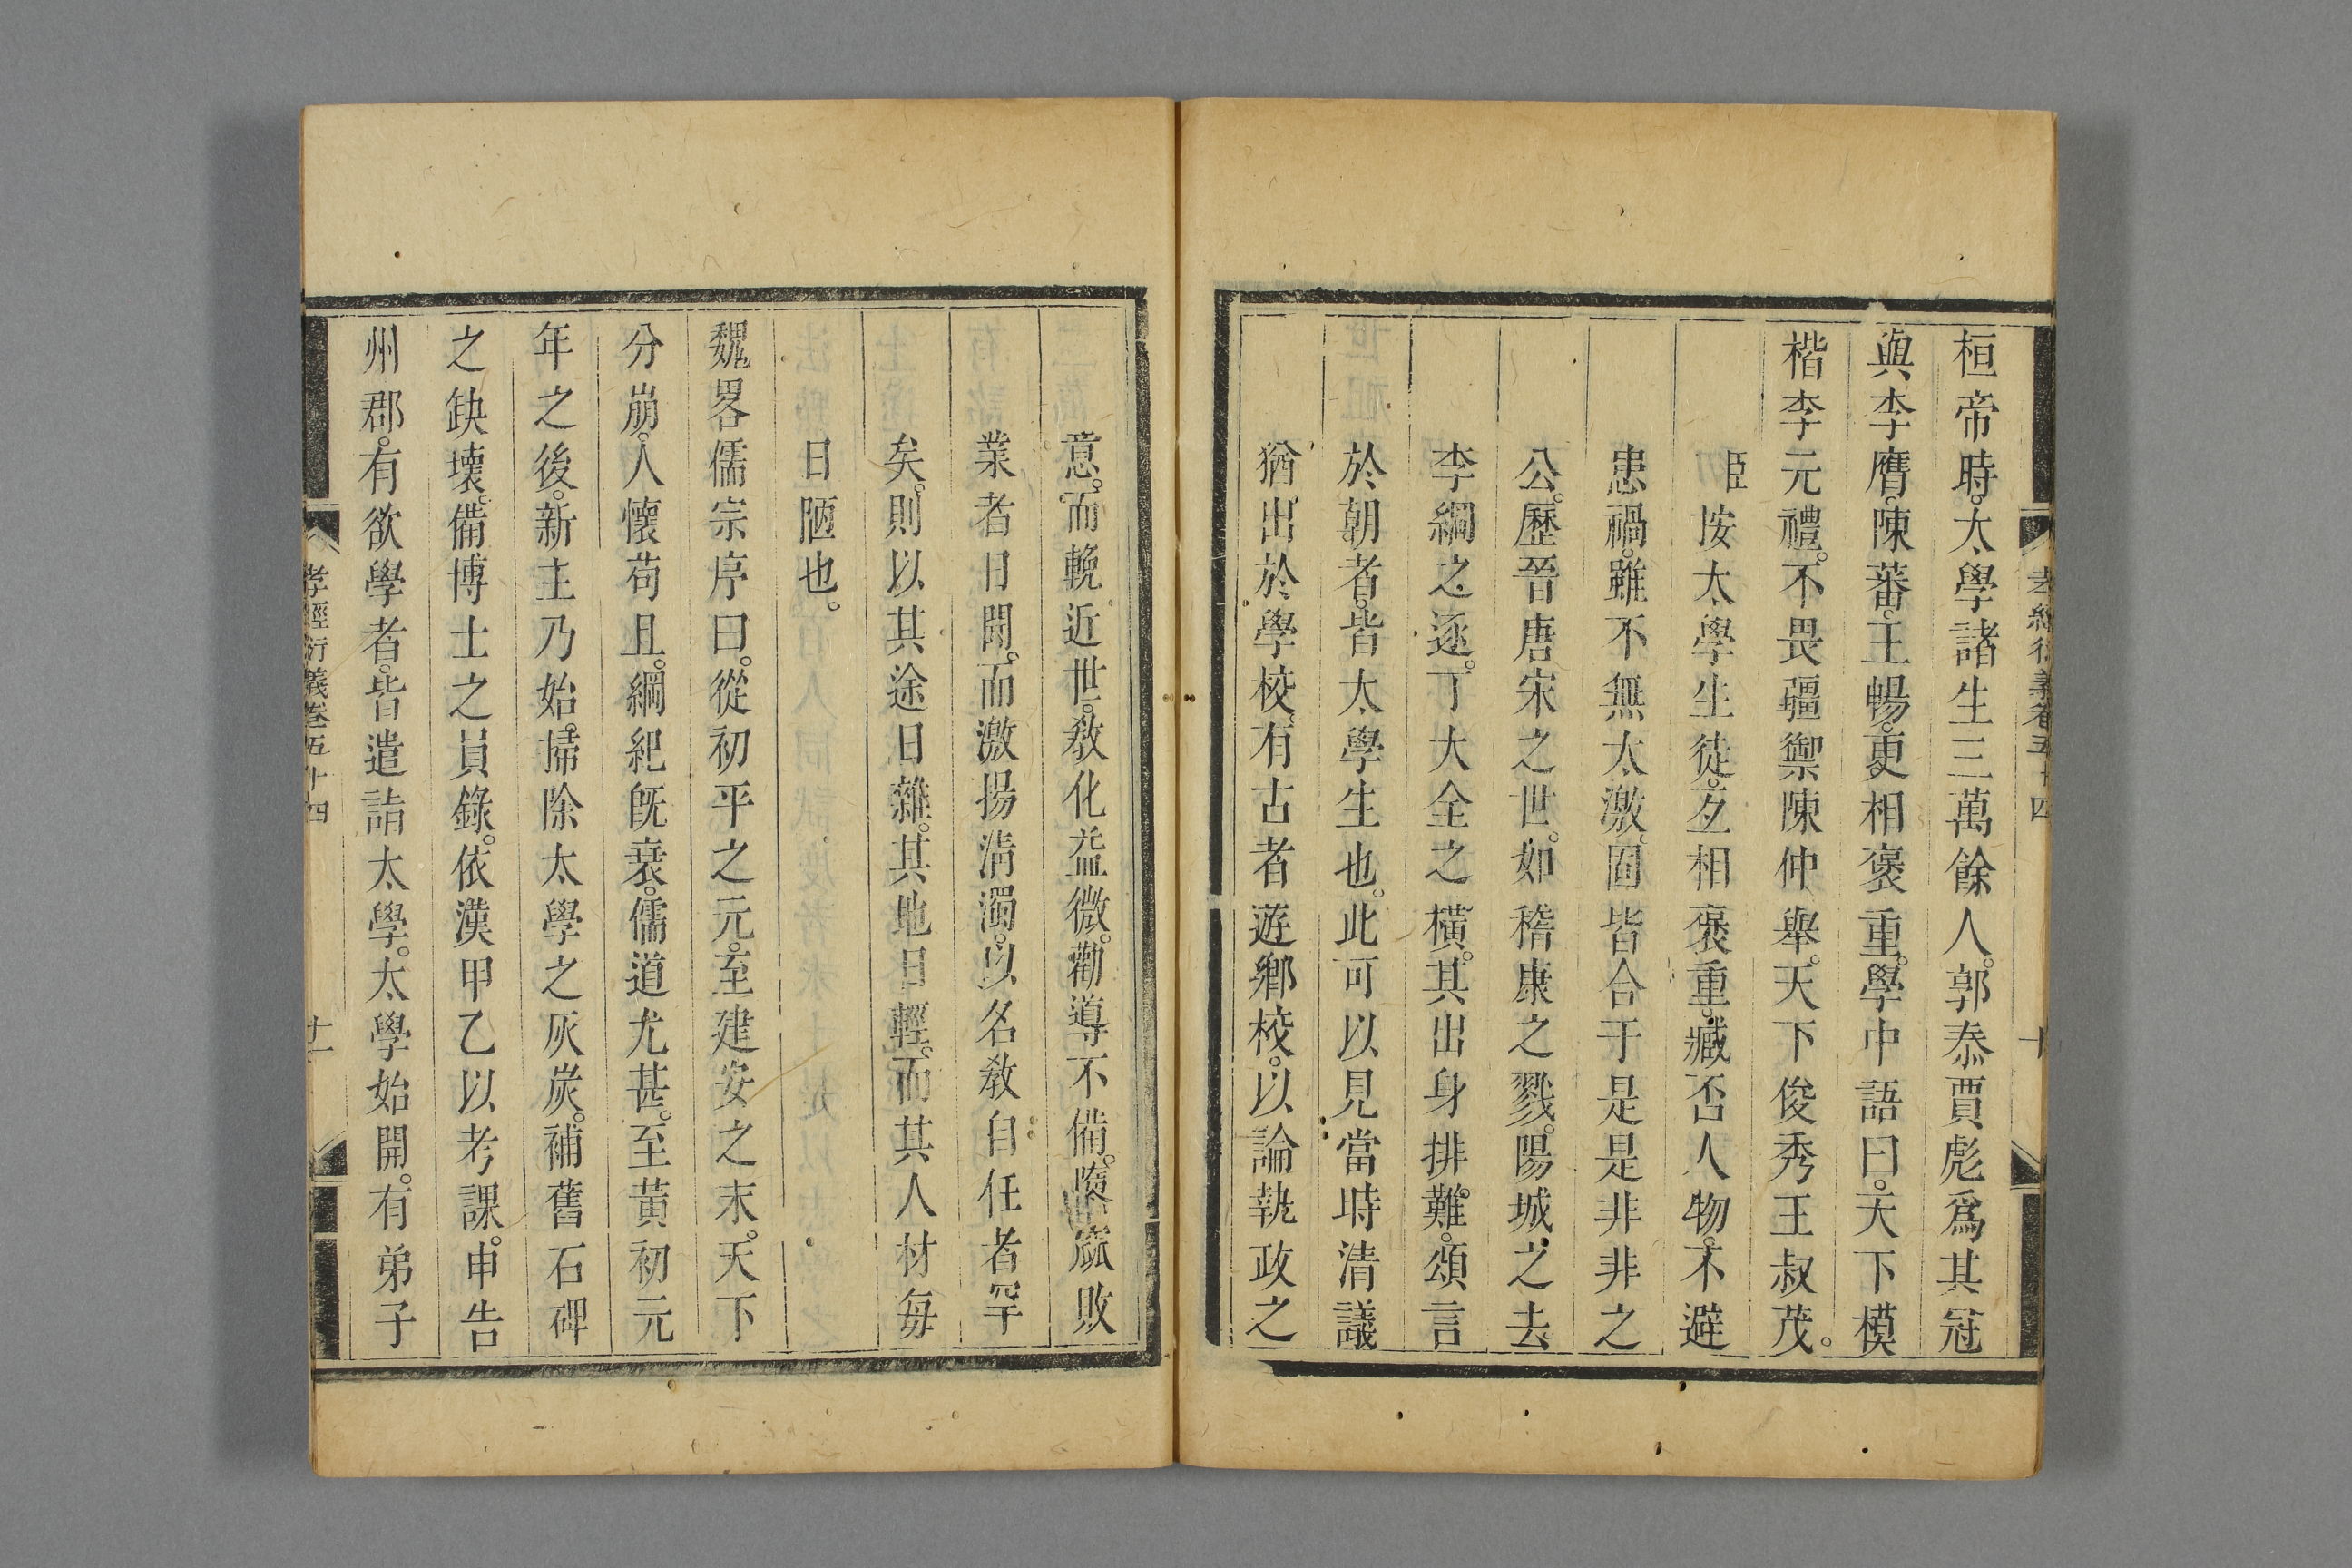 孝經衍義卷五十四 十
桓帝時。太學諸生三萬餘人。郭泰賈彪爲其冠
與李膺。陳蕃。王暢。更相褒重。學中語曰。天下模
楷李元禮。不畏疆禦陳仲舉。天下俊秀王叔茂。
臣按太學生徒。互相褒重。臧否人物。不避
患禍。雖不無太激。固皆合于是是非非之
公。歷晉唐宋之世。如稽康之戮。陽城之去
李綱之逐。丁大全之橫。其出身排難。頌言
於朝者。皆太學生也。此可以見當時清議
猶出於學校。有古者遊鄉校。以論執政之
意。而輓近世。敎化益微。勸導不備。隳窳敗
業者日聞。而激揚清濁。以名敎自任者罕
矣。則以其途日雜。其地日輕。而其人材每
日陋也。
魏畧儒宗序曰。從初平之元。至建安之末。天下
分崩。人懷苟且。綱紀旣衰。儒道尤甚。至黃初元
年之後。新主乃始。掃除太學之灰炭。補舊石碑
之缺壞。備博士之員錄。依漢甲乙以考課。申告
州郡。有欲學者。皆遣詣太學。太學始開。有弟子
孝經衍義卷五十四 十一